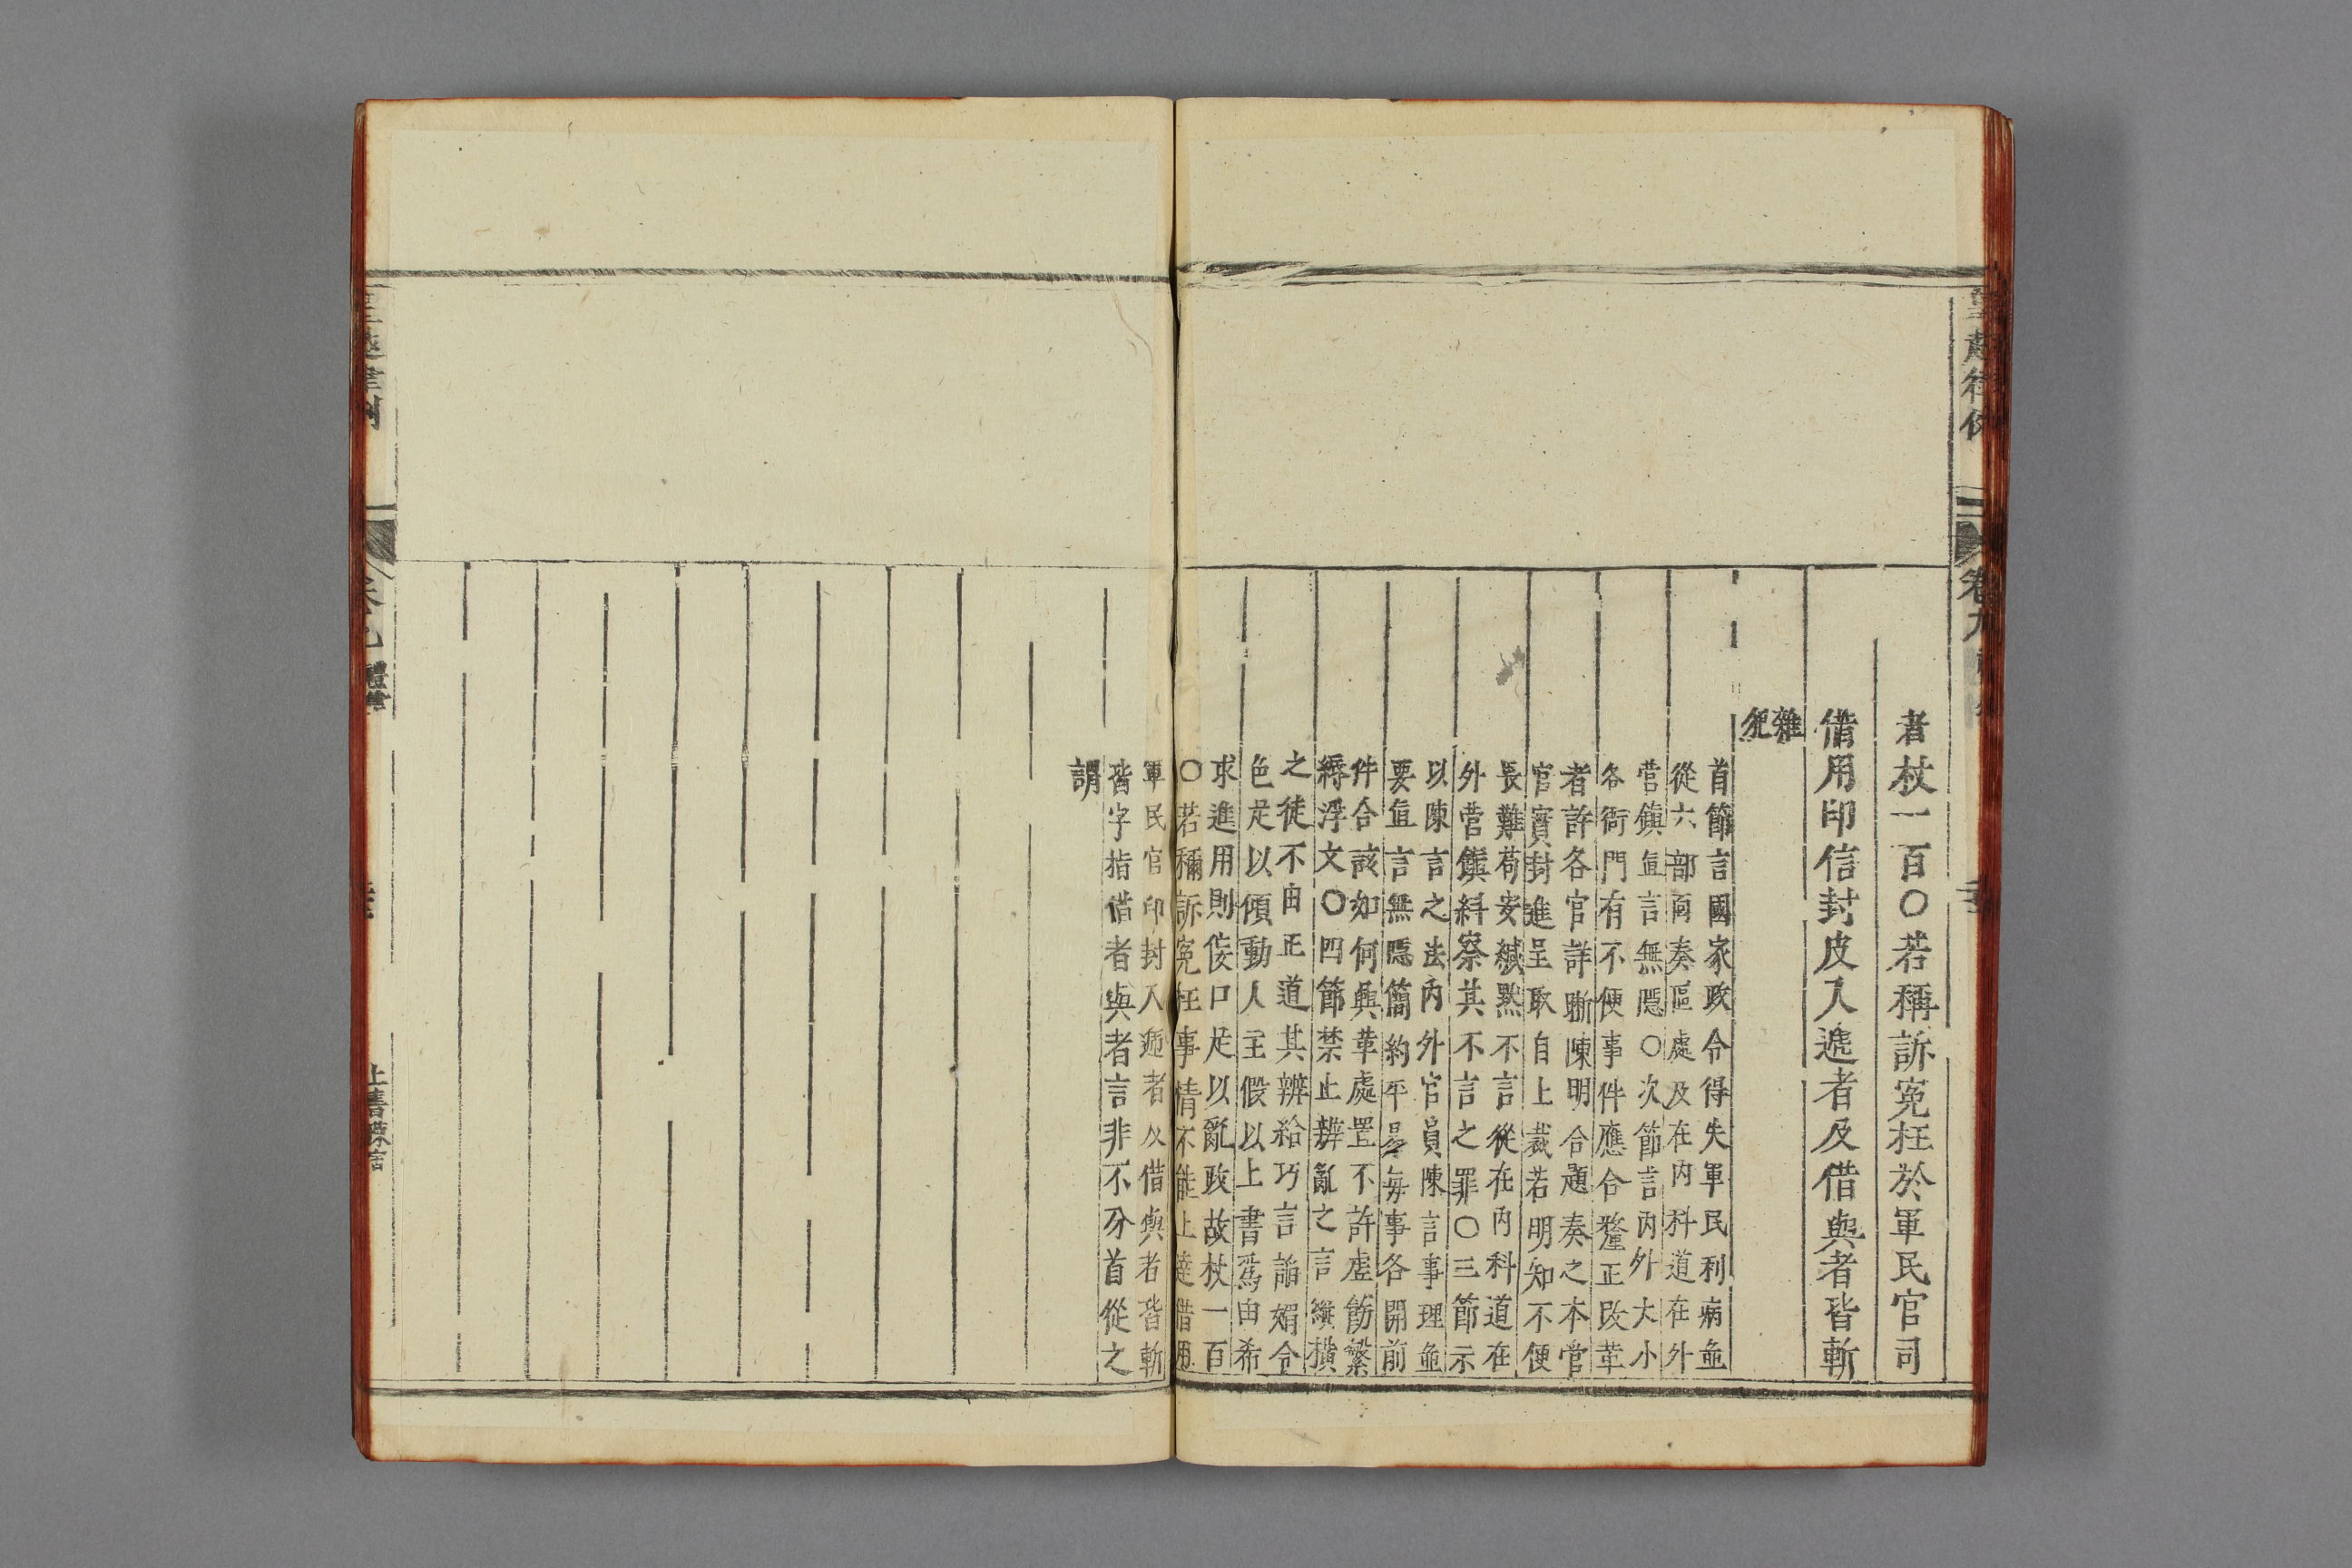 卷九
者杖一百○若稱訴冤枉於軍民官司
借用印信封皮入遞者及借與者皆斬
雜犯
首節言國家政令得失軍民利病並
從六部面奏區處及在內科道在外
營鎮直言無隱○次節言內外大小
各衙門有不便事件應合釐正改革
者許各官詳晰陳明合題奏之本管
官實封進呈取自上裁若明知不便
長難苟安緘默不言從在內科道在
外營鎮糾察其不言之罪○三節示
以陳言之法內外官員陳言事理並
要直言無隱簡約平易每事各開前
件合該如何興革處置不許虛飾繁
縟浮文○四節禁止辨亂之言縱橫
之徒不由正道其辨給巧言諂媚令
色足以傾動人主假以上書為由希
求進用則佞口足以亂政故杖一百
○若稱訴冤枉事情不能上達借用
軍民官印封入遞者及借與者皆斬
皆字指借者與者言非不分首從之
謂
上書陳言